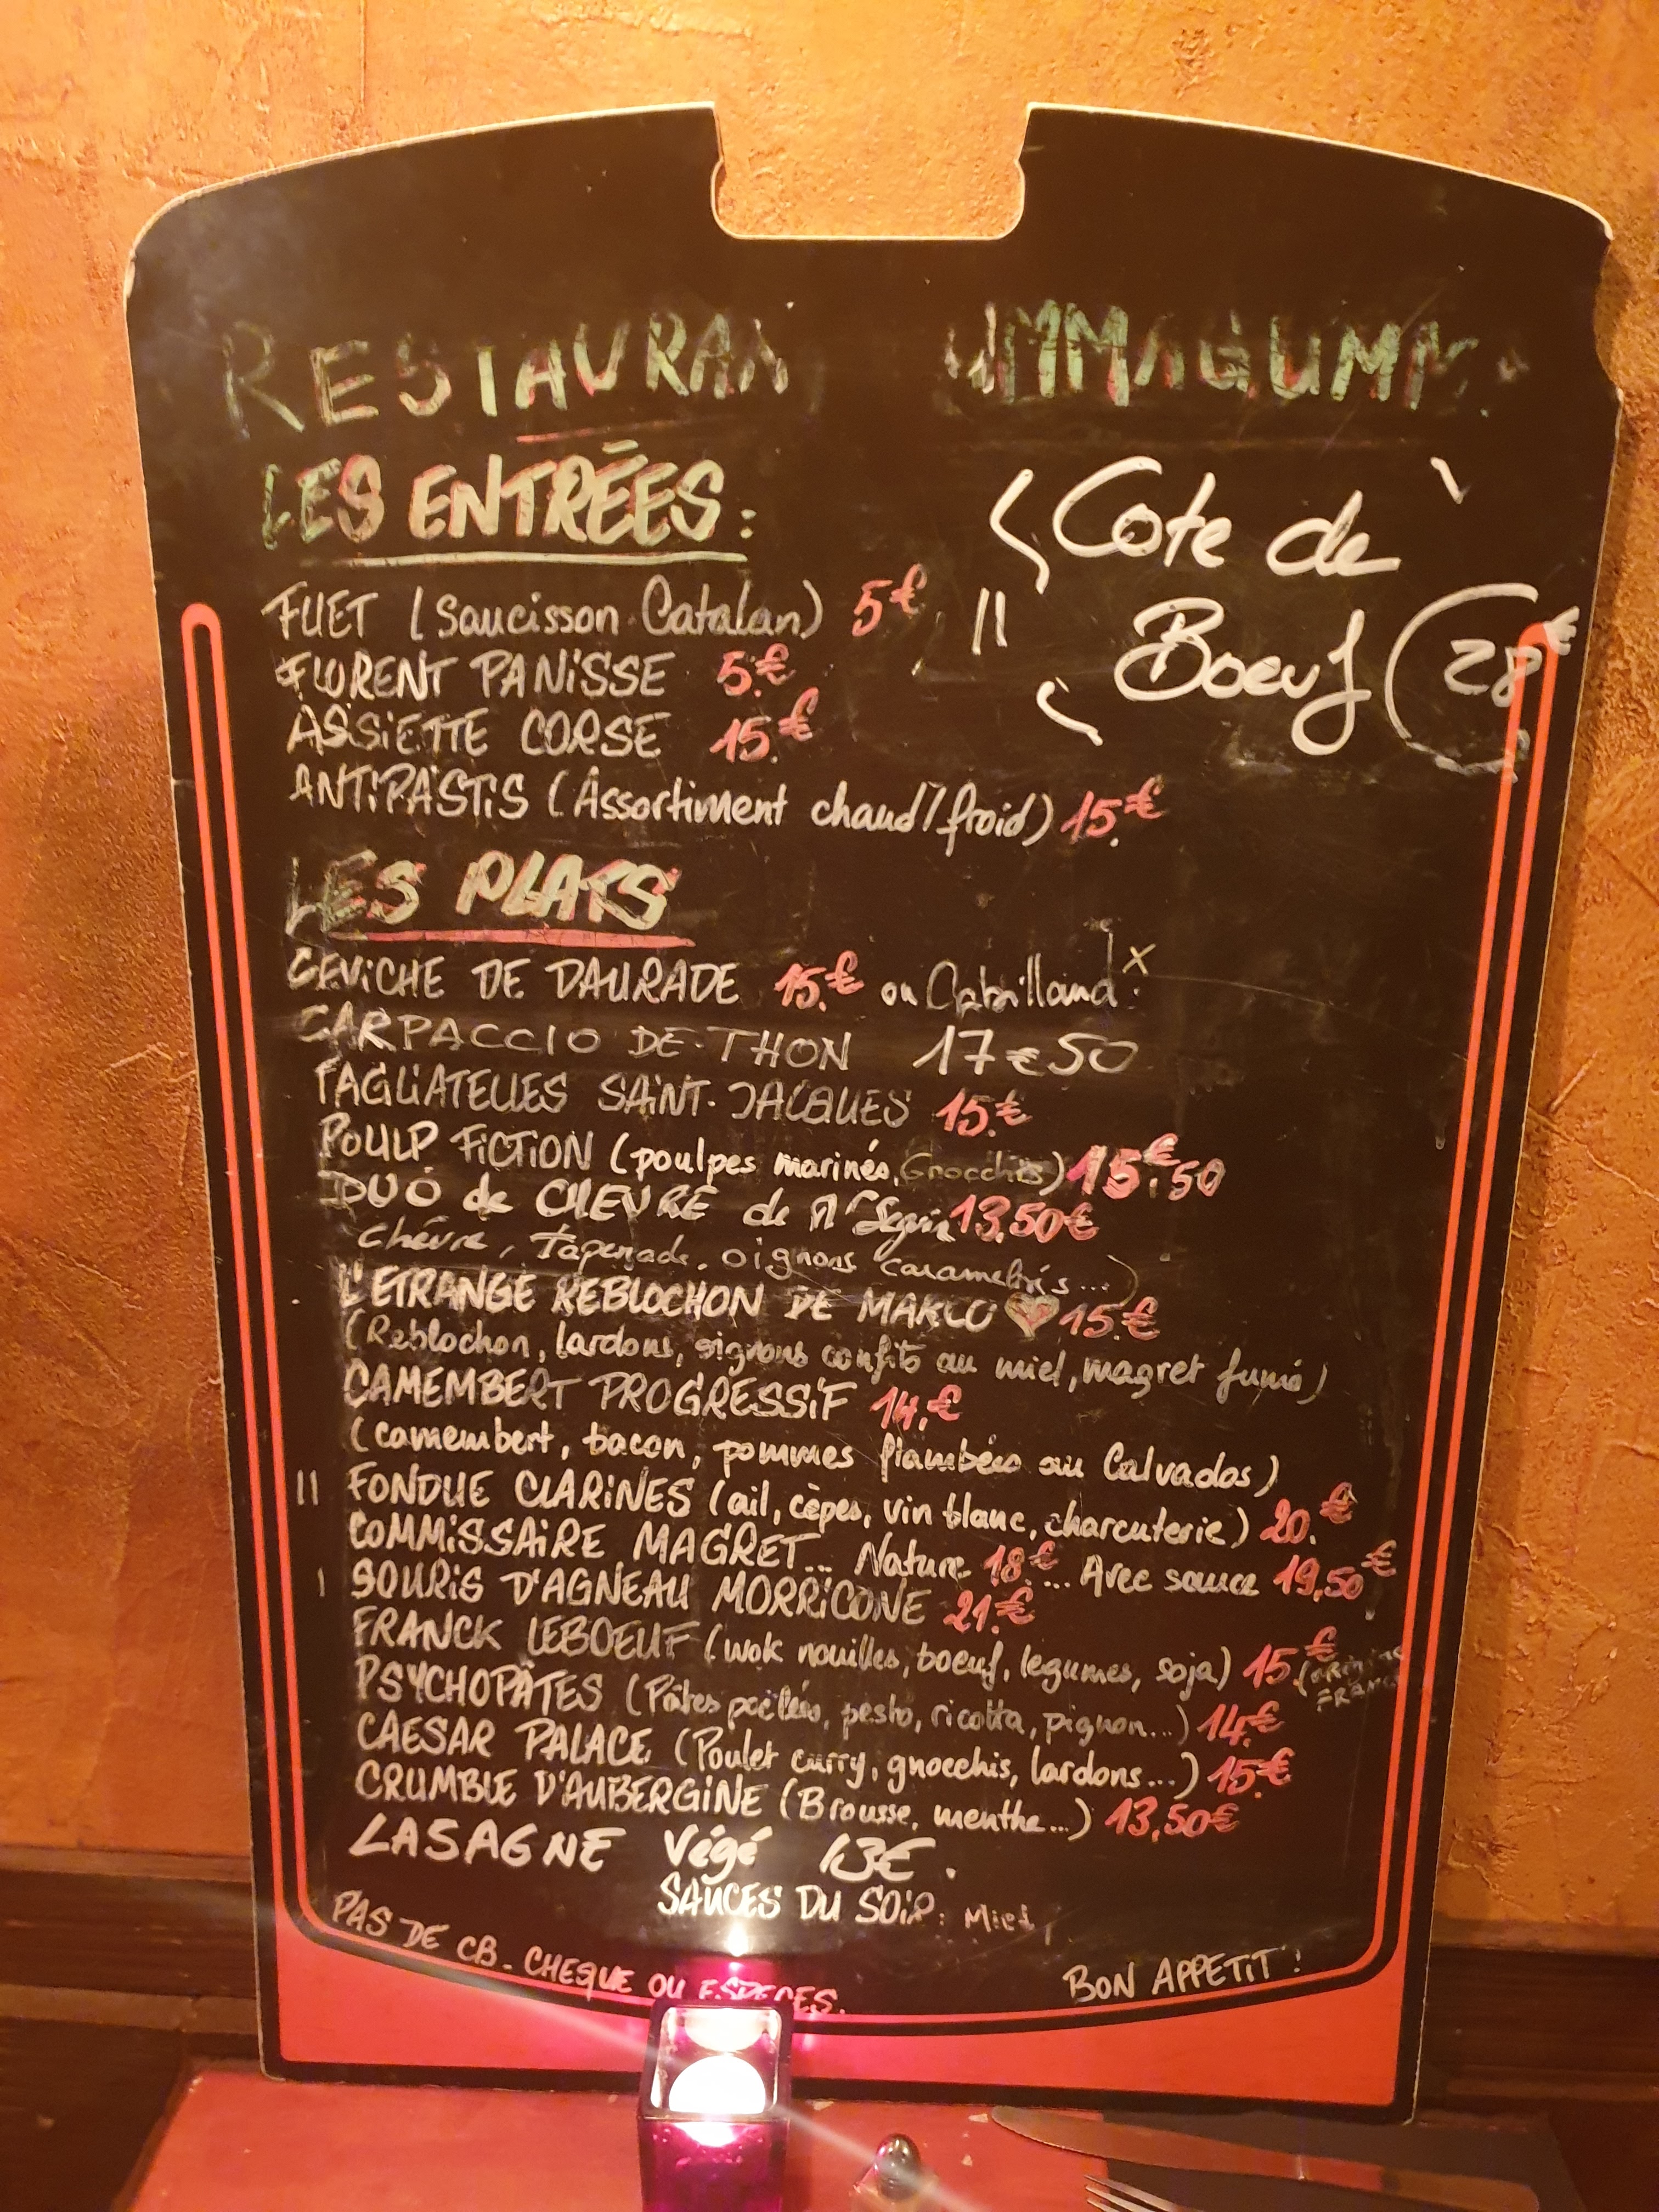 RESTAURAN UMMAGUMM
LES ENTRÉES:
Cote de
Boeuf 28€
FUET (Saucisson Catalan) 5€
FLORENT PANiSSE 5.€
ASSiETTE CORSE 15.€
ANTiPASTiS (Assortiment chaud/froid) 15.€
LES PLATS
CEViCHE DE DAURADE 15.€ ou Cabillaud
CARPACCIO DE THON 17€50
TAGLIATELLES SAiNT-JACQUES 15.€
POULP FiCTiON (poulpes marinés, Gnocchis) 15€.50
DUO de CHEVRE de Mr Seguin 13.50€
chèvre, tapenade, oignons caramélisés...)
L'ETRANGE REBLOCHON DE MARCO 15.€
(Reblochon, lardons, oignons confits au miel, magret fumé)
CAMEMBERT PROGRESSiF 14.€
(camembert, bacon, pommes flambées au Calvados)
FONDUE CLARiNES (ail, cèpes, vin blanc, charcuterie) 20.€
COMMiSSAiRE MAGRET... Nature 18.€... Avec sauce 19,50€
SOURiS D'AGNEAU MORRiCONE 21.€
FRANCK LEBOEUF (wok nouilles, boeuf, legumes, soja) 15.€ (ORIGINE
FRANCE
PSYCHOPÂTES (Pâtes poêlées, pesto, ricotta, pignon...) 14.€
CAESAR PALACE (Poulet curry, gnocchis, lardons...) 15.€
CRUMBLE D'AUBERGiNE (Brousse, menthe...) 13,50€
LASAGNE Végé 13€.
SAUCES DU SOiR: Miel,
PAS DE CB - CHEQUE OU ESPECES.
BON APPETiT!